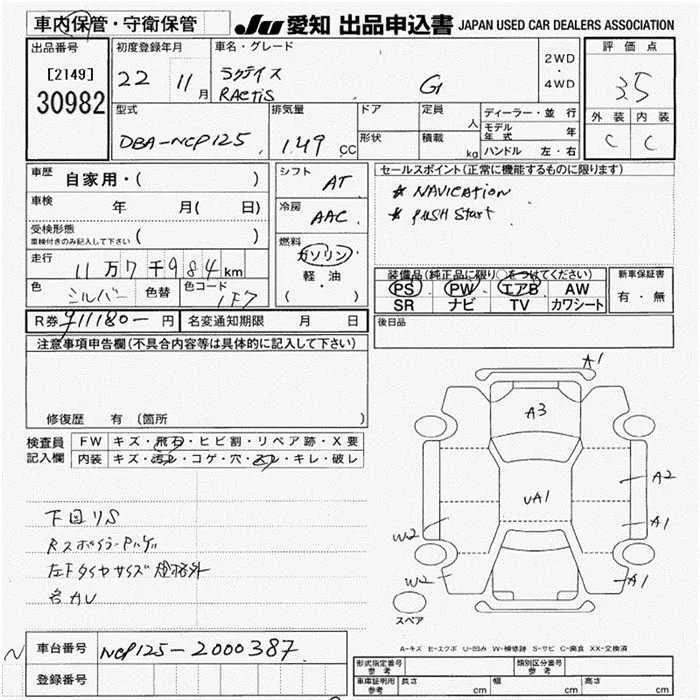 車内保管・守衛保管
JU 愛知 出品申込書 JAPAN USED CAR DEALERS ASSOCIATION
出品番号
[2149]
30982
初度登録年月
22 11 月
車名・グレード
ラクティス
RACTIS
G
2WD
・
4WD
評価点
3.5
外装 内装
C C
型式
DBA-NCP125
排気量
1.49 CC
ドア
形状
定員
人
積載
kg
ディーラー・並行
モデル年式 年
ハンドル 左・右
車歴 自家用・( )
車検 年 月( 日)
受検形態
車検付きのみ記入して下さい ( )
走行 11万7千984km
色 シルバー 色替 色コード 1F7
シフト AT
冷房 AAC
燃料
ガソリン
・
軽・油
( )
セールスポイント(正常に機能するものに限ります)
* NAVICATION
* PUSH START
装備品(純正品に限り○をつけてください)
PS PW エアB AW
SR ナビ TV カワシート
新車保証書
有・無
R券 ¥11180- 円 名変通知期限 月 日
後日品
注意事項申告欄(不具合内容等は具体的に記入して下さい)
修復歴 有 (箇所 )
検査員
記入欄
FW キズ・飛石・ヒビ割・リペア跡・X要
内装 キズ・汚レ・コゲ・穴・スレ・キレ・破レ
下回りS
左Fタイヤサイズ規格外
A1
A3
UA1
A2
A1
W2
W2
A1
スペア
A-キズ E-エクボ U-凹み W-補修跡 S-サビ C-腐食 XX-交換済
N 車台番号 NCP125-2000387
登録番号
形式指定番号
参考
類別区分番号
参考
車庫証明用
参考
長さ cm 幅 cm 高さ cm